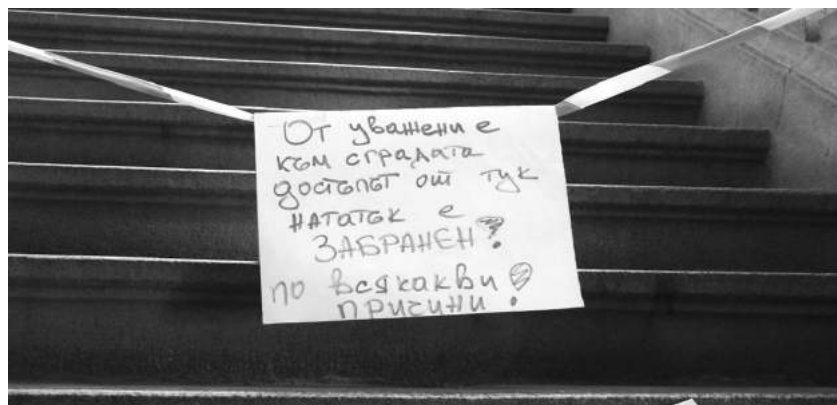 От уважение
към сградата
достъпът от тук
нататък е
ЗАБРАНЕН!
по всякакви
причини!